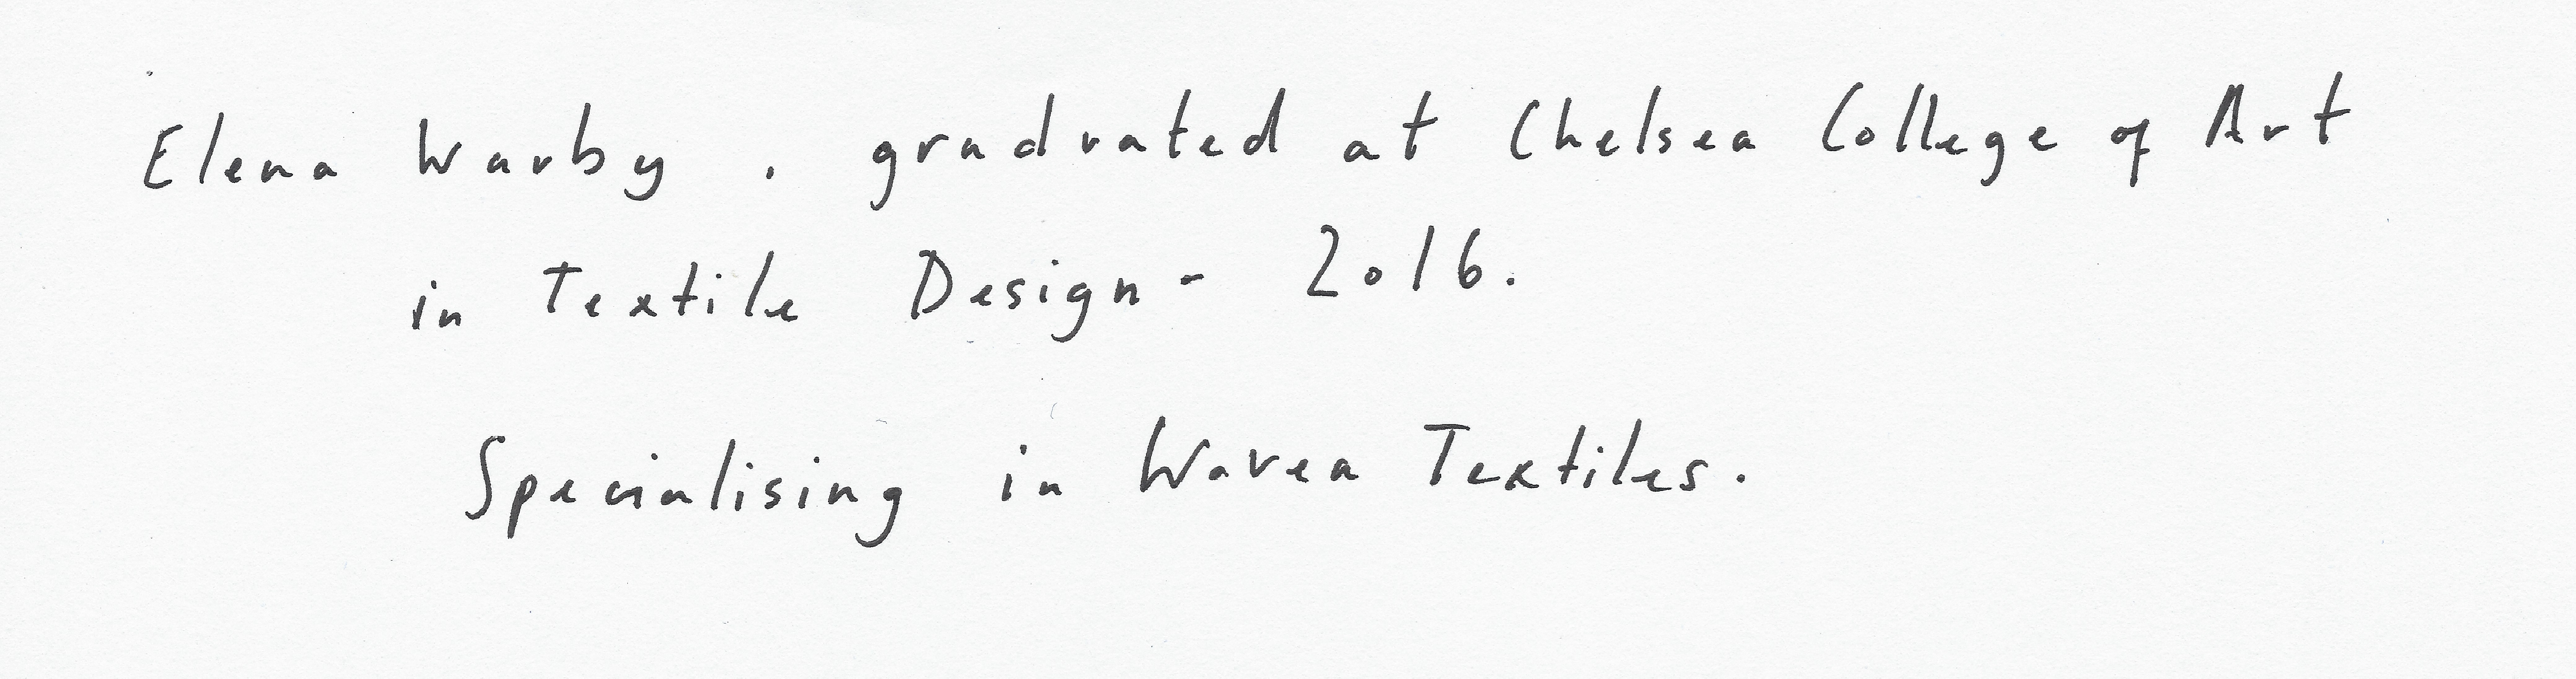 Elena Warby, graduated at Chelsea College of Art
in Textile Design - 2016.
Specialising in Woven Textiles.